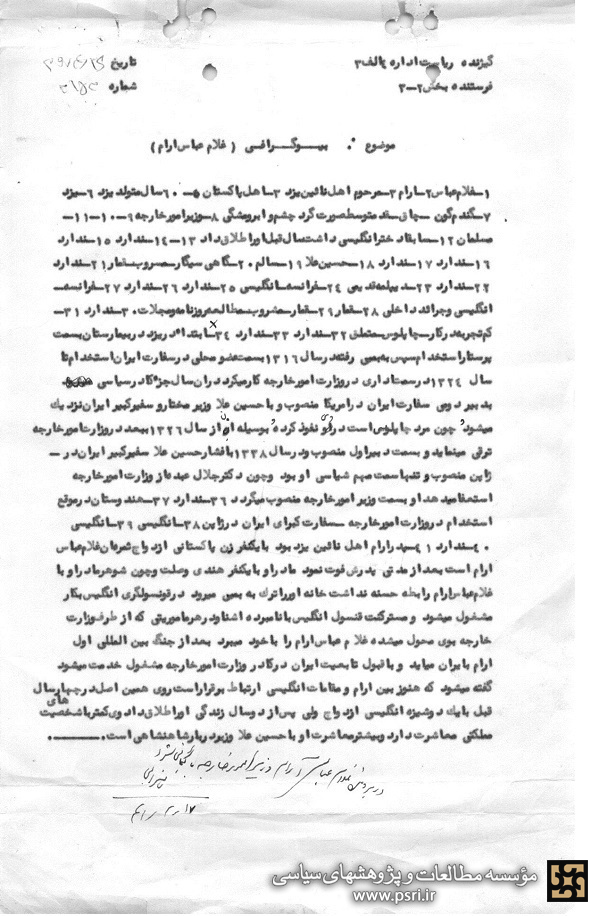 گیرنده ریاست اداره یکم الف ۳
تاریخ
فرستنده بخش ۲-۳
شماره
موضوع : بیوگرافی (غلام عباس ارام)
۱-غلام عباس ۲-ارام ۳-مرحوم اهل نائین یزد ۴-اهل پاکستان ۵- ۶۰ سال متولد یزد ۶-یزد
۷-گندم گون -چاق-قد متوسط صورت گرد چشم و ابرو مشگی ۸-وزیر امور خارجه ۹-۱۰-۱۱-
مسلمان ۱۲-سابقا دختر انگلیسی داشت سال قبل او را طلاق داد ۱۳-۱۴-ندارد ۱۵-ندارد
۱۶-ندارد ۱۷-ندارد ۱۸-حسین علا ۱۹-سالم ۲۰-گاهی سیگار-مشروب-قمار ۲۱-ندارد
۲۲-ندارد ۲۳-دیپلمه قدیمی ۲۴-فرانسه-انگلیسی ۲۵-ندارد ۲۶-ندارد ۲۷-فرانسه-
انگلیسی و جرائد داخلی ۲۸-قمار ۲۹-قمار-مشروب-مطالعه روزنامه و مجلات ۳۰-ندارد ۳۱-
کم تجربه در کار-چاپلوس-متملق ۳۲-ندارد ۳۳-ندارد ۳۴-ابتدا در یزد در بیمارستان بسمت
پرستار استخدام سپس به بمبئی رفته در سال ۱۳۱۶ بسمت عضو محلی در سفارت ایران استخدام تا
سال ۱۳۲۴ در سمت اداری در وزارت امور خارجه کار میکرد در ان سال جزء کادر سیاسی
بدبیر دومی سفارت ایران در امریکا منصوب و با حسین علا وزیر مختار و سفیر کبیر ایران نزدیك
میشود چون مرد چاپلوسی است در وی نفوذ کرده بوسیله او از سال ۱۳۲۶ ببعد در وزارت امور خارجه
ترقی مینماید و بسمت دبیر اول منصوب و در سال ۱۳۳۸ با فشار حسین علا سفیر کبیر ایران در-
ژاپن منصوب و تنها سمت مهم سیاسی او بود وچون دکتر جلال عبده از وزارت امور خارجه
استعفا میدهد او بسمت وزیر امور خارجه منصوب میگردد ۳۶-ندارد ۳۷-هندوستان در موقع
استخدام در وزارت امور خارجه -سفارت کبرای ایران در ژاپن ۳۸-انگلیسی ۳۹-انگلیسی
۴۰-ندارد ۴۱-پدر ارام اهل نائین یزد بود با یکنفر زن پاکستانی ازدواج ثمره ان غلام عباس
ارام است بعد از مدتی پدرش فوت نمود مادر او با یکنفر هندی وصلت وچون شوهر مادر او با
غلام عباس ارام رابطه حسنه نداشت خانه او را ترك به بمبئی میرود در قونسولگری انگلیس بکار
مشغول میشود و مستر کنت قنسول انگلیس با نامبرده اشنا و در هر ماموریتی که از طرف وزارت
خارجه بوی محول میشده غلام عباس ارام را با خود میبرد بعد از جنگ بین المللی اول
ارام با ایران میاید و با قبول تابعیت ایران در کادر وزارت امور خارجه مشغول خدمت میشود
گفته میشود که هنوز بین ارام و مقامات انگلیسی ارتباط برقرار است روی همین اصل در چهار سال
قبل با یك دوشیزه انگلیسی ازدواج ولی پس از دو سال زندگی او را طلاق داد وی کمتر با شخصیت های
مملکتی معاشرت دارد و بیشتر معاشرت او با حسین علا وزیر دربار شاهنشاهی است.
در پرونده غلام عباس آرام وزیر امور خارجه بایگانی شود
۴۱/۲/۱۷
مؤسسه مطالعات و پژوهشهای سیاسی
www.psri.ir